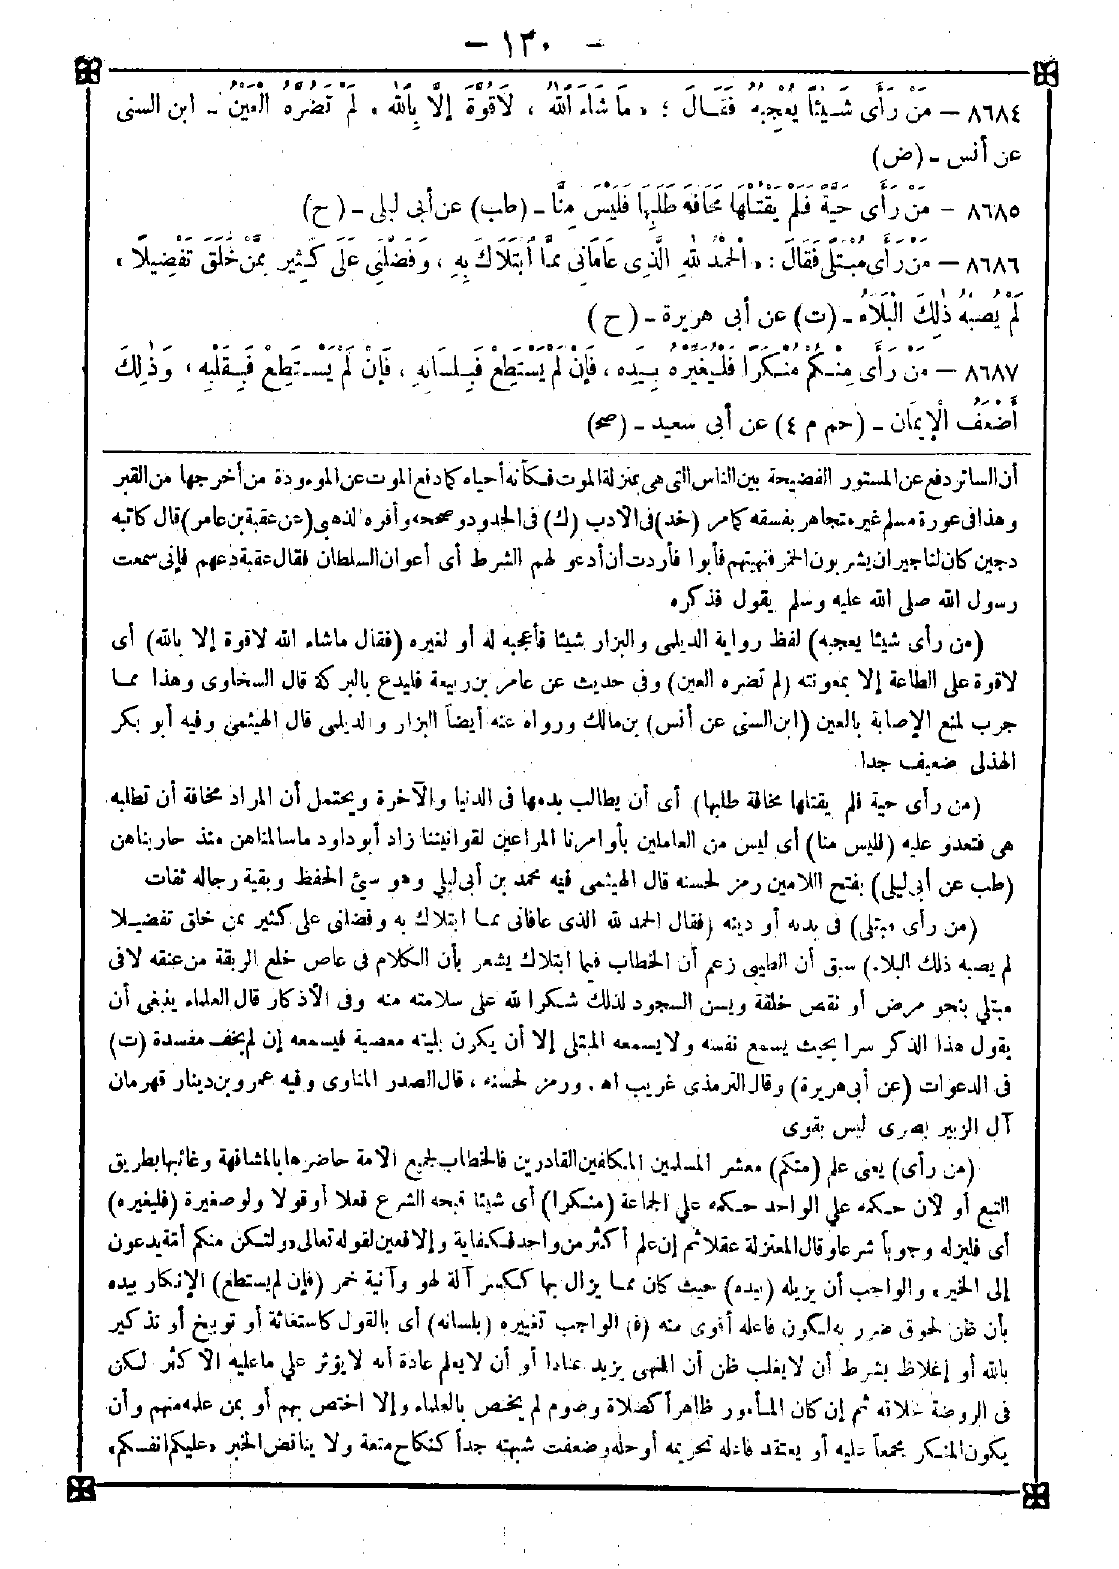 – ١٣٠ –
٨٦٨٤ – مَنْ رَأَى شَيْئًا يُعْجِبُهُ فَقَالَ : « مَا شَاءَ اللهُ ، لَاقُوَّةَ إِلَّا بِاللهِ » لَمْ تَضُرَّهُ الْعَيْنُ ـ ابن السنى
عن أنس ـ (ض)
٨٦٨٥ – مَنْ رَأَى حَيَّةً فَلَمْ يَقْتُلْهَا مَخَافَةَ طَلَبِهَا فَلَيْسَ مِنَّا ـ (طب) عن أبى ليلى ـ (ح)
٨٦٨٦ – مَنْ رَأَى مُبْتَلًى فَقَالَ : «الْحَمْدُ لِلهِ الَّذِى عَافَانِى مِمَّا ابْتَلَاكَ بِهِ ، وَفَضَّلَنِى عَلَى كَثِيرٍ مِمَّنْ خَلَقَ تَفْضِيلًا ،
لَمْ يُصِبْهُ ذٰلِكَ الْبَلَاءُ ـ (ت) عن أبى هريرة ـ (ح)
٨٦٨٧ – مَنْ رَأَى مِنْكُمْ مُنْكَرًا فَلْيُغَيِّرْهُ بِيَدِهِ ، فَإِنْ لَمْ يَسْتَطِعْ فَبِلِسَانِهِ ، فَإِنْ لَمْ يَسْتَطِعْ فَبِقَلْبِهِ ، وَذٰلِكَ
أَضْعَفُ الْإِيمَانِ ـ (حم م ٤) عن أبى سعيد ـ (صح)
أن الساتر دفع عن المستور الفضيحة بين الناس التى هى بمنزلة الموت فكأنه أحياه كما دفع الموت عن الموءودة من أخرجها من القبر
وهذا فى عورة مسلم غير متجاهر بفسقه كما مر (خد) فى الأدب (ك) فى الحدود وصححه وأقره الذهبى (عن عقبة بن عامر) قال كاتبه
دجين كان لنا جيران يشربون الخمر فنهيتهم فأبوا فأردت أن أدعو لهم الشرط أى أعوان السلطان فقال عقبة دعهم فإنى سمعت
رسول الله صلى الله عليه وسلم يقول فذكره
(من رأى شيئا يعجبه) لفظ رواية الديلمى والبزار شيئا فأعجبه له أو لغيره (فقال ماشاء الله لاقوة إلا بالله) أى
لاقوة على الطاعة إلا بمعونته (لم تضره العين) وفى حديث عن عامر بن ربيعة فليدع بالبركة قال السخاوى وهذا مما
جرب لمنع الإصابة بالعين (ابن السنى عن أنس) بن مالك ورواه عنه أيضاً البزار والديلمى قال الهيثمى وفيه أبو بكر
الهذلى ضعيف جدا
(من رأى حية فلم يقتلها مخافة طلبها) أى أن يطالب بدمها فى الدنيا والآخرة ويحتمل أن المراد مخافة أن تطلبه
هى فتعدو عليه (فليس منا) أى ليس من العاملين بأوامرنا المراعين لقوانيننا زاد أبو داود ماسالمناهن منذ حاربناهن
(طب عن أبى ليلى) بفتح اللامين رمز لحسنه قال الهيثمى فيه محمد بن أبى ليلى وهو سيئ الحفظ وبقية رجاله ثقات
(من رأى مبتلى) فى بدنه أو دينه (فقال الحمد لله الذى عافانى مما ابتلاك به وفضلنى على كثير ممن خلق تفضيلا
لم يصبه ذلك البلاء) سبق أن الطيبى زعم أن الخطاب فيما ابتلاك يشعر بأن الكلام فى عاص خلع الربقة من عنقه لافى
مبتلى بنحو مرض أو نقص خلقة ويسن السجود لذلك شكرا لله على سلامته منه وفى الأذكار قال العلماء ينبغى أن
يقول هذا الذكر سرا بحيث يسمع نفسه ولا يسمعه المبتلى إلا أن يكون بليته معصية فيسمعه إن لم يخف مفسدة (ت)
فى الدعوات (عن أبى هريرة) وقال الترمذى غريب اه . ورمز لحسنه ، قال الصدر المناوى وفيه عمرو بن دينار قهرمان
آل الزبير بصرى ليس بقوى
(من رأى) يعنى علم (منكم) معشر المسلمين المكلفين القادرين فالخطاب لجميع الأمة حاضرها بالمشافهة وغائبها بطريق
التبع أو لأن حكمه على الواحد حكمه على الجماعة (منكرا) أى شيئا قبحه الشرع فعلا أو قولا ولو صغيرة (فليغيره)
أى فليزله وجوباً شرعا وقال المعتزلة عقلا ثم إن علم أكثر من واحد فكفاية وإلا فعين لقوله تعالى «ولتكن منكم أمة يدعون
إلى الخير» والواجب أن يزيله (بيده) حيث كان مما يزال بها ككسر آلة لهو وآنية خمر (فإن لم يستطع) الإنكار بيده
بأن ظن لحوق ضرر به لكون فاعله أقوى منه (ف) الواجب تغييره (بلسانه) أى بالقول كاستغاثة أو توبيخ أو تذكير
بالله أو إغلاظ بشرط أن لا يغلب ظن أن المنهى يزيد عنادا أو أن لا يعلم عادة أنه لا يؤثر على ماعليه الأكثر لكن
فى الروضة خلافه ثم إن كان المأمور ظاهراً كصلاة وصوم لم يختص بالعلماء وإلا اختص بهم أو بمن علمه منهم وأن
يكون المنكر مجمعاً عليه أو يعتقد فاعله تحريمه أو حله وضعفت شبهته جداً كنكاح متعة ولا يناقض الخبر «عليكم أنفسكم»